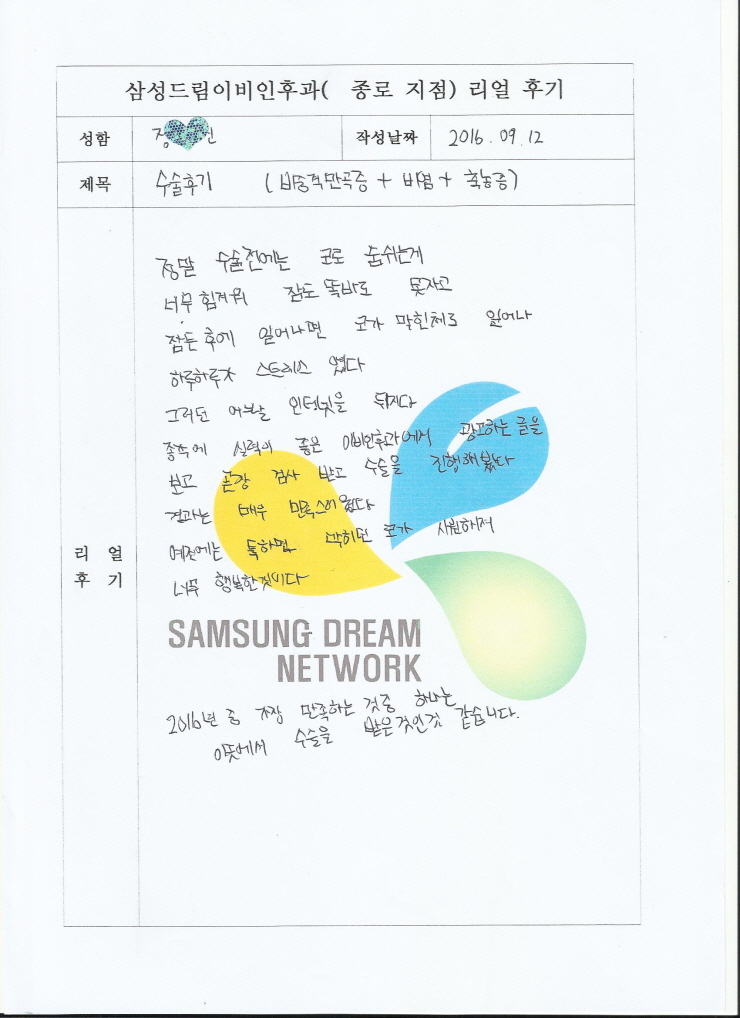 삼성드림이비인후과( 종로 지점) 리얼 후기
성함 정 인 작성날짜 2016. 09. 12
제목 수술후기 (비중격만곡증 + 비염 + 축농증)
정말 수술전에는 코로 숨쉬는게
너무 힘겨워 잠도 똑바로 못자고
잠든 후에 일어나면 코가 막힌체로 일어나
하루하루가 스트레스 였다
그러던 어느날 인터넷을 뒤지다
종로에 실력이 좋은 이비인후과에서 광고하는 글을
보고 곧장 검사 받고 수술을 진행해봤다
결과는 매우 만족스러웠다
예전에는 툭하면 막히던 코가 시원해져
너무 행복한것이다
리 얼
후 기
SAMSUNG DREAM
NETWORK
2016년 중 가장 만족하는 것중 하나는
이곳에서 수술을 받은것인것 같습니다.